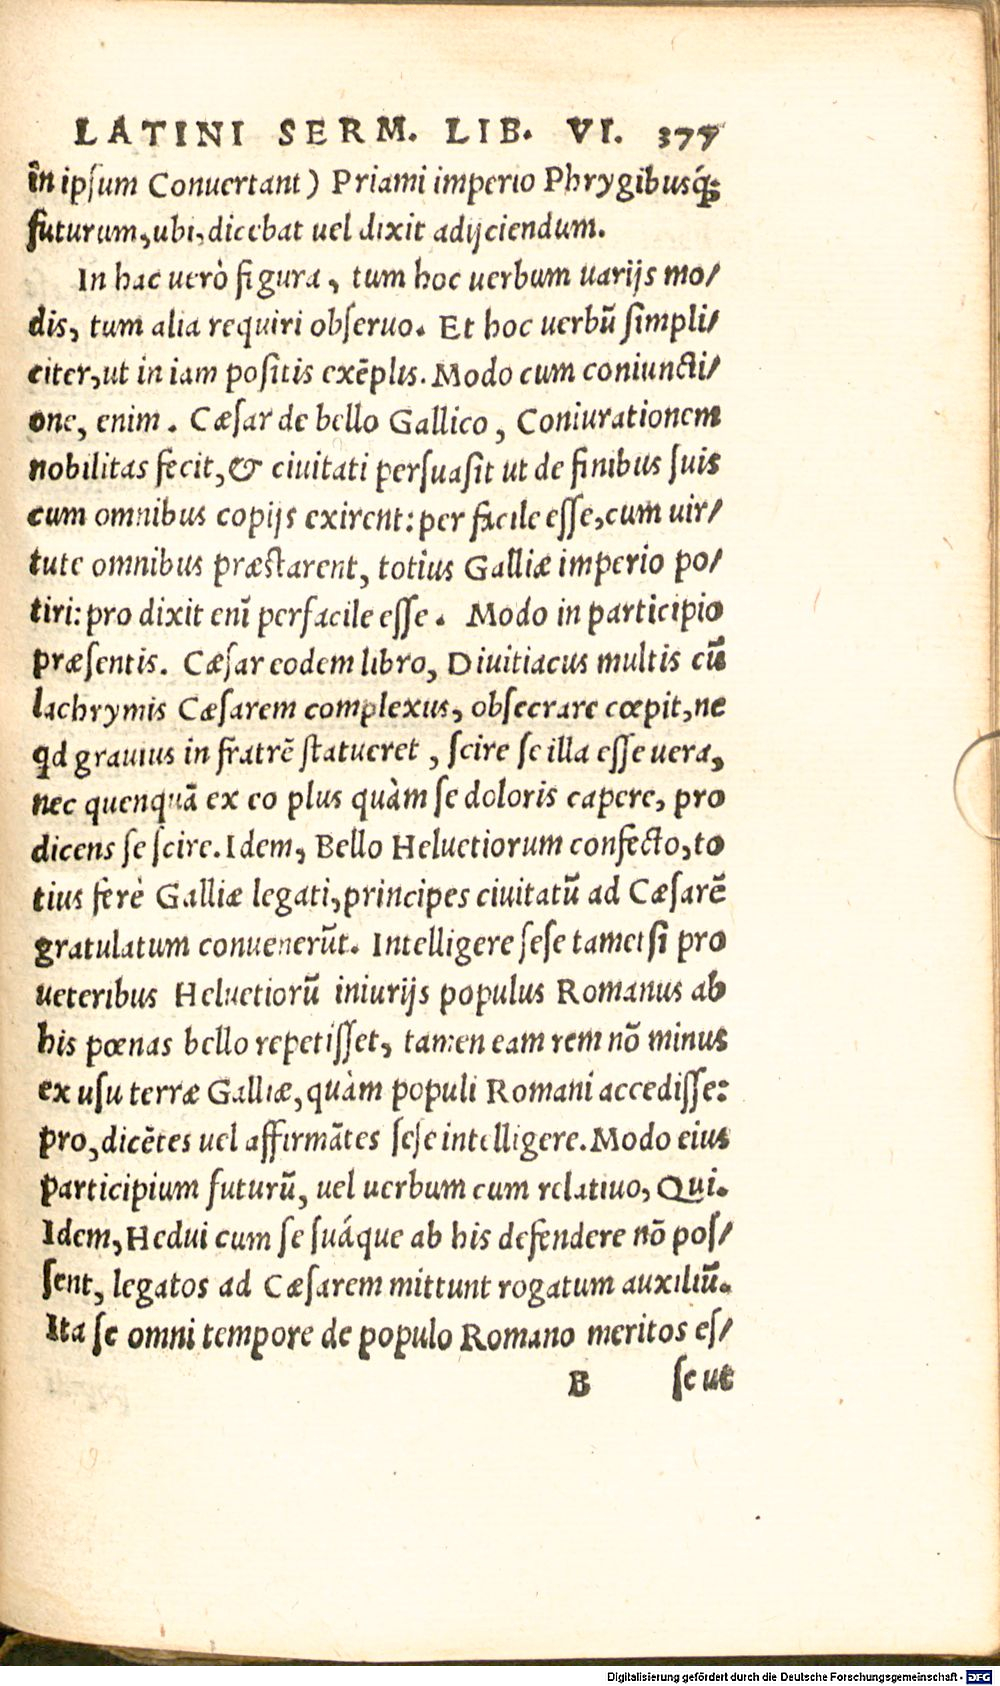 LATINI SERM. LIB. VI. 377
in ipsum Conuertant) Priami imperio Phrygibusq́;
futurum, ubi, dicebat uel dixit adijciendum.
In hac uerò figura, tum hoc uerbum uarijs mo/
dis, tum alia requiri obseruo. Et hoc uerbũ simpli/
citer, ut in iam positis exẽplis. Modo cum coniuncti/
one, enim. Cæsar de bello Gallico, Coniurationem
nobilitas fecit, & ciuitati persuasit ut de finibus suis
cum omnibus copijs exirent: per facile esse, cum uir/
tute omnibus præstarent, totius Galliæ imperio po/
tiri: pro dixit enĩ perfacile esse. Modo in participio
præsentis. Cæsar eodem libro, Diuitiacus multis cũ
lachrymis Cæsarem complexus, obsecrare cœpit, ne
qd grauius in fratrẽ statueret, scire se illa esse uera,
nec quenquã ex eo plus quàm se doloris capere, pro
dicens se scire. Idem, Bello Heluetiorum confecto, to
tius ferè Galliæ legati, principes ciuitatũ ad Cæsarẽ
gratulatum conuenerũt. Intelligere sese tametsi pro
ueteribus Heluetiorũ iniurijs populus Romanus ab
his pœnas bello repetisset, tamen eam rem nõ minus
ex usu terræ Galliæ, quàm populi Romani accedisse:
pro, dicẽtes uel affirmãtes sese intelligere. Modo eius
participium futurũ, uel uerbum cum relatiuo, Qui.
Idem, Hedui cum se suáque ab his defendere nõ pos/
sent, legatos ad Cæsarem mittunt rogatum auxiliũ.
Ita se omni tempore de populo Romano meritos es/
B se ut
Digitalisierung gefördert durch die Deutsche Forschungsgemeinschaft - DFG